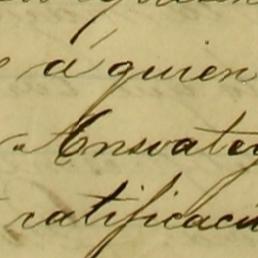 á quien
Ansoateg
ratificaci